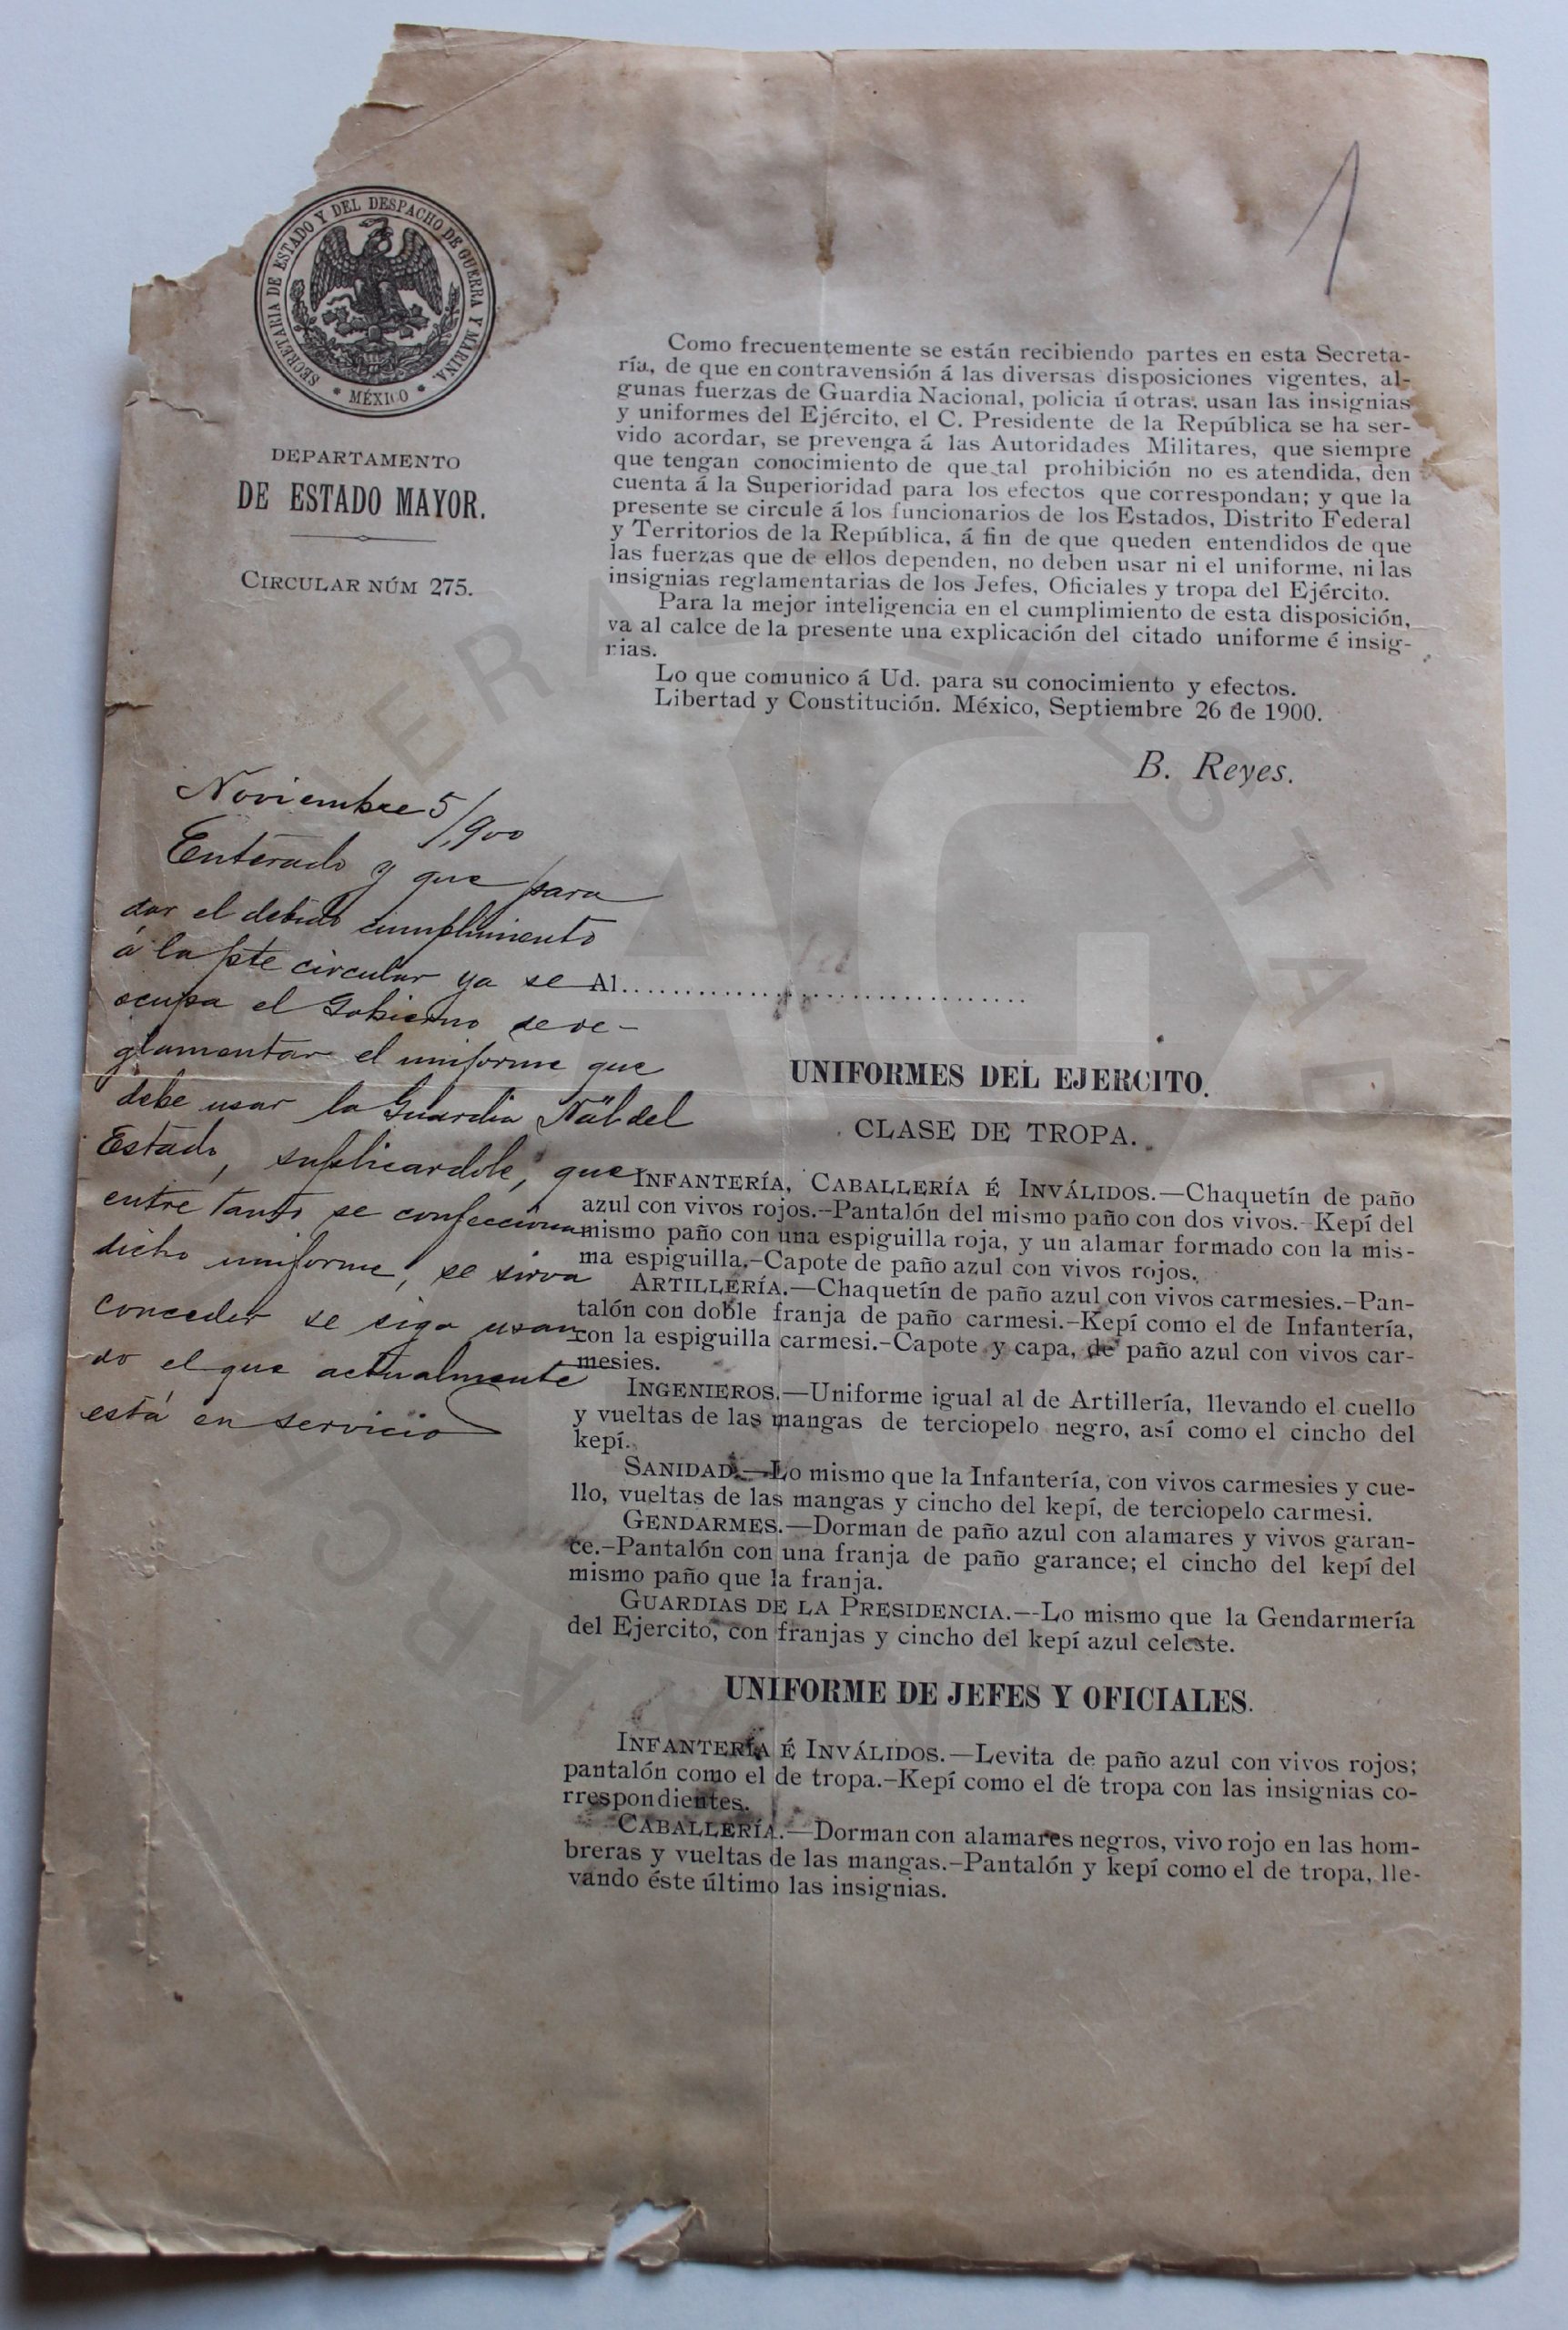 1
SECRETARIA DE ESTADO Y DEL DESPACHO DE GUERRA Y MARINA.
* MÉXICO *
DEPARTAMENTO
DE ESTADO MAYOR.
CIRCULAR NÚM 275.
Como frecuentemente se están recibiendo partes en esta Secreta-
ría, de que en contravensión á las diversas disposiciones vigentes, al-
gunas fuerzas de Guardia Nacional, policia ú otras, usan las insignias
y uniformes del Ejército, el C. Presidente de la República se ha ser-
vido acordar, se prevenga á las Autoridades Militares, que siempre
que tengan conocimiento de que tal prohibición no es atendida, den
cuenta á la Superioridad para los efectos que correspondan; y que la
presente se circule á los funcionarios de los Estados, Distrito Federal
y Territorios de la República, á fin de que queden entendidos de que
las fuerzas que de ellos dependen, no deben usar ni el uniforme, ni las
insignias reglamentarias de los Jefes, Oficiales y tropa del Ejército.
Para la mejor inteligencia en el cumplimiento de esta disposición,
va al calce de la presente una explicación del citado uniforme é insig-
rias.
Lo que comunico á Ud. para su conocimiento y efectos.
Libertad y Constitución. México, Septiembre 26 de 1900.
B. Reyes.
Noviembre 5/900
Enterado y que para
dar el debido cumplimiento
á la pte circular ya se
ocupa el Gobierno de re-
glamentar el uniforme que
debe usar la Guardia Nal del
Estado, suplicandole, que
entre tanto se confecciona
dicho uniforme, se sirva
conceder se siga usan
do el que actualmente
está en servicio
Al..................................
UNIFORMES DEL EJERCITO.
CLASE DE TROPA.
INFANTERÍA, CABALLERÍA É INVÁLIDOS.—Chaquetín de paño
azul con vivos rojos.-Pantalón del mismo paño con dos vivos.-Kepí del
mismo paño con una espiguilla roja, y un alamar formado con la mis-
ma espiguilla.-Capote de paño azul con vivos rojos.
ARTILLERÍA.—Chaquetín de paño azul con vivos carmesies.-Pan-
talón con doble franja de paño carmesi.-Kepí como el de Infantería,
con la espiguilla carmesi.-Capote y capa, de paño azul con vivos car-
mesies.
INGENIEROS.—Uniforme igual al de Artillería, llevando el cuello
y vueltas de las mangas de terciopelo negro, así como el cincho del
kepí.
SANIDAD.—Lo mismo que la Infantería, con vivos carmesies y cue-
llo, vueltas de las mangas y cincho del kepí, de terciopelo carmesi.
GENDARMES.—Dorman de paño azul con alamares y vivos garan-
ce.-Pantalón con una franja de paño garance; el cincho del kepí del
mismo paño que la franja.
GUARDIAS DE LA PRESIDENCIA.--Lo mismo que la Gendarmería
del Ejercito, con franjas y cincho del kepí azul celeste.
UNIFORME DE JEFES Y OFICIALES.
INFANTERÍA É INVÁLIDOS.—Levita de paño azul con vivos rojos;
pantalón como el de tropa.-Kepí como el de tropa con las insignias co-
rrespondientes.
CABALLERÍA.—Dorman con alamares negros, vivo rojo en las hom-
breras y vueltas de las mangas.-Pantalón y kepí como el de tropa, lle-
vando éste último las insignias.